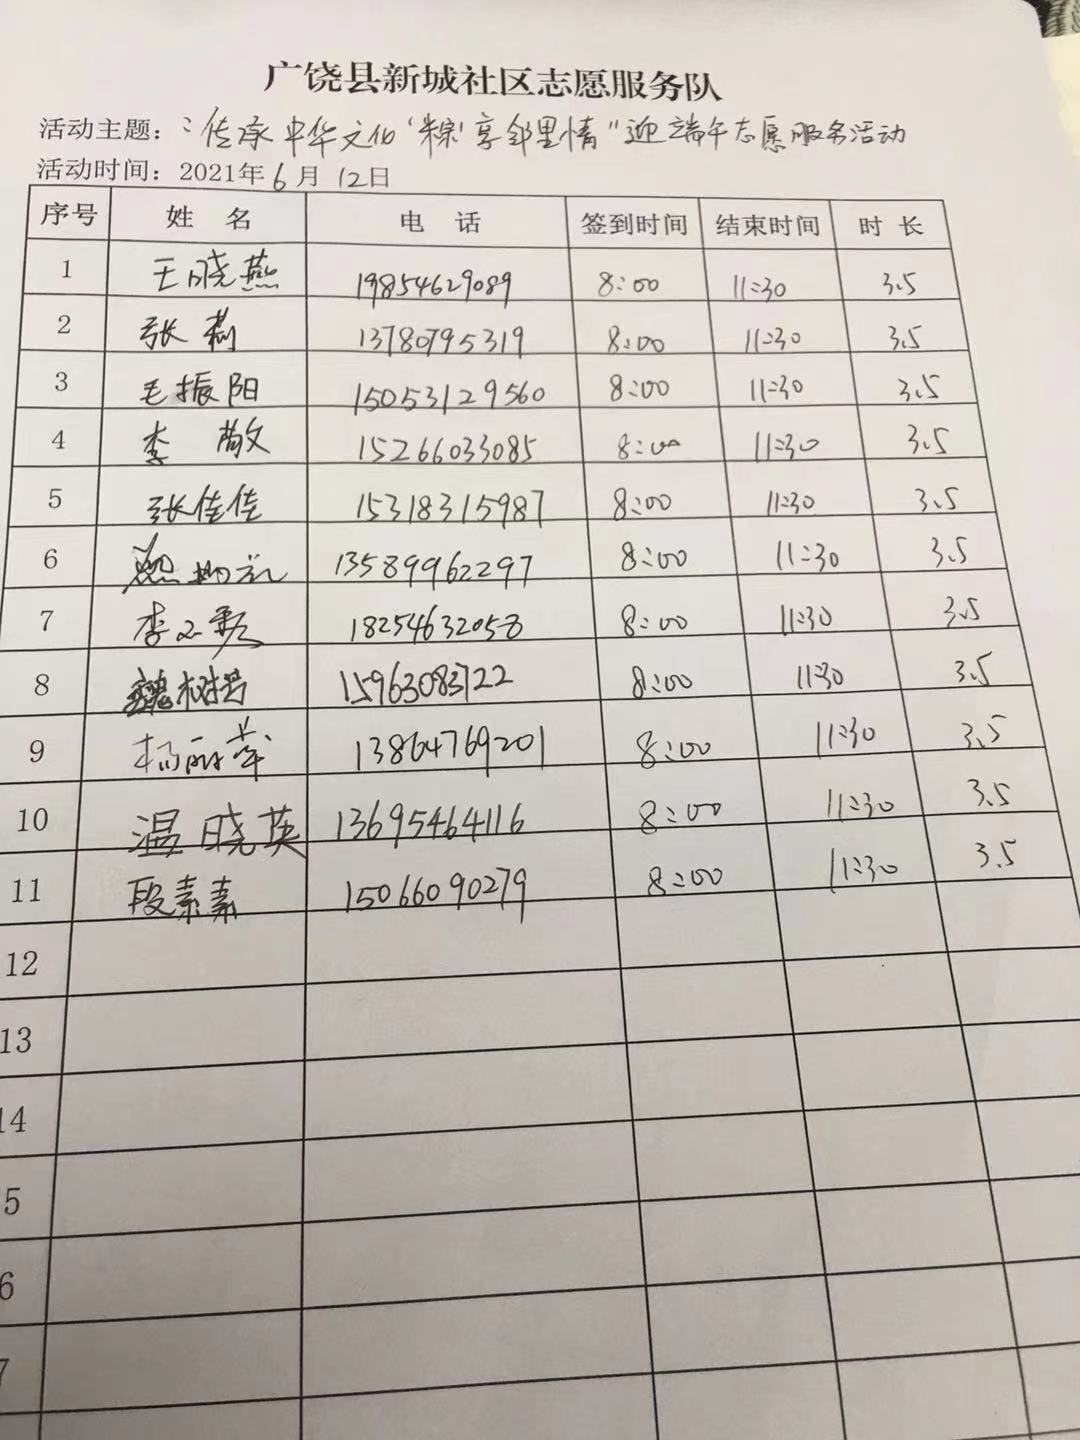 广饶县新城社区志愿服务队
活动主题：“传承中华文化‘粽’享邻里情”迎端午志愿服务活动
活动时间：2021年6月12日
序号 姓 名 电 话 签到时间 结束时间 时 长
1 王晓燕 19854629089 8:00 11:30 3.5
2 张莉 13780795319 8:00 11:30 3.5
3 毛振阳 15053129560 8:00 11:30 3.5
4 李 敬 15266033085 8:00 11:30 3.5
5 张佳佳 15318315987 8:00 11:30 3.5
6 13589962297 8:00 11:30 3.5
7 李 18254632058 8:00 11:30 3.5
8 魏树 15963083722 8:00 11:30 3.5
9 杨丽华 13864769201 8:00 11:30 3.5
10 温晓英 13695464116 8:00 11:30 3.5
11 段素素 15066090279 8:00 11:30 3.5
12
13
14
5
6
7